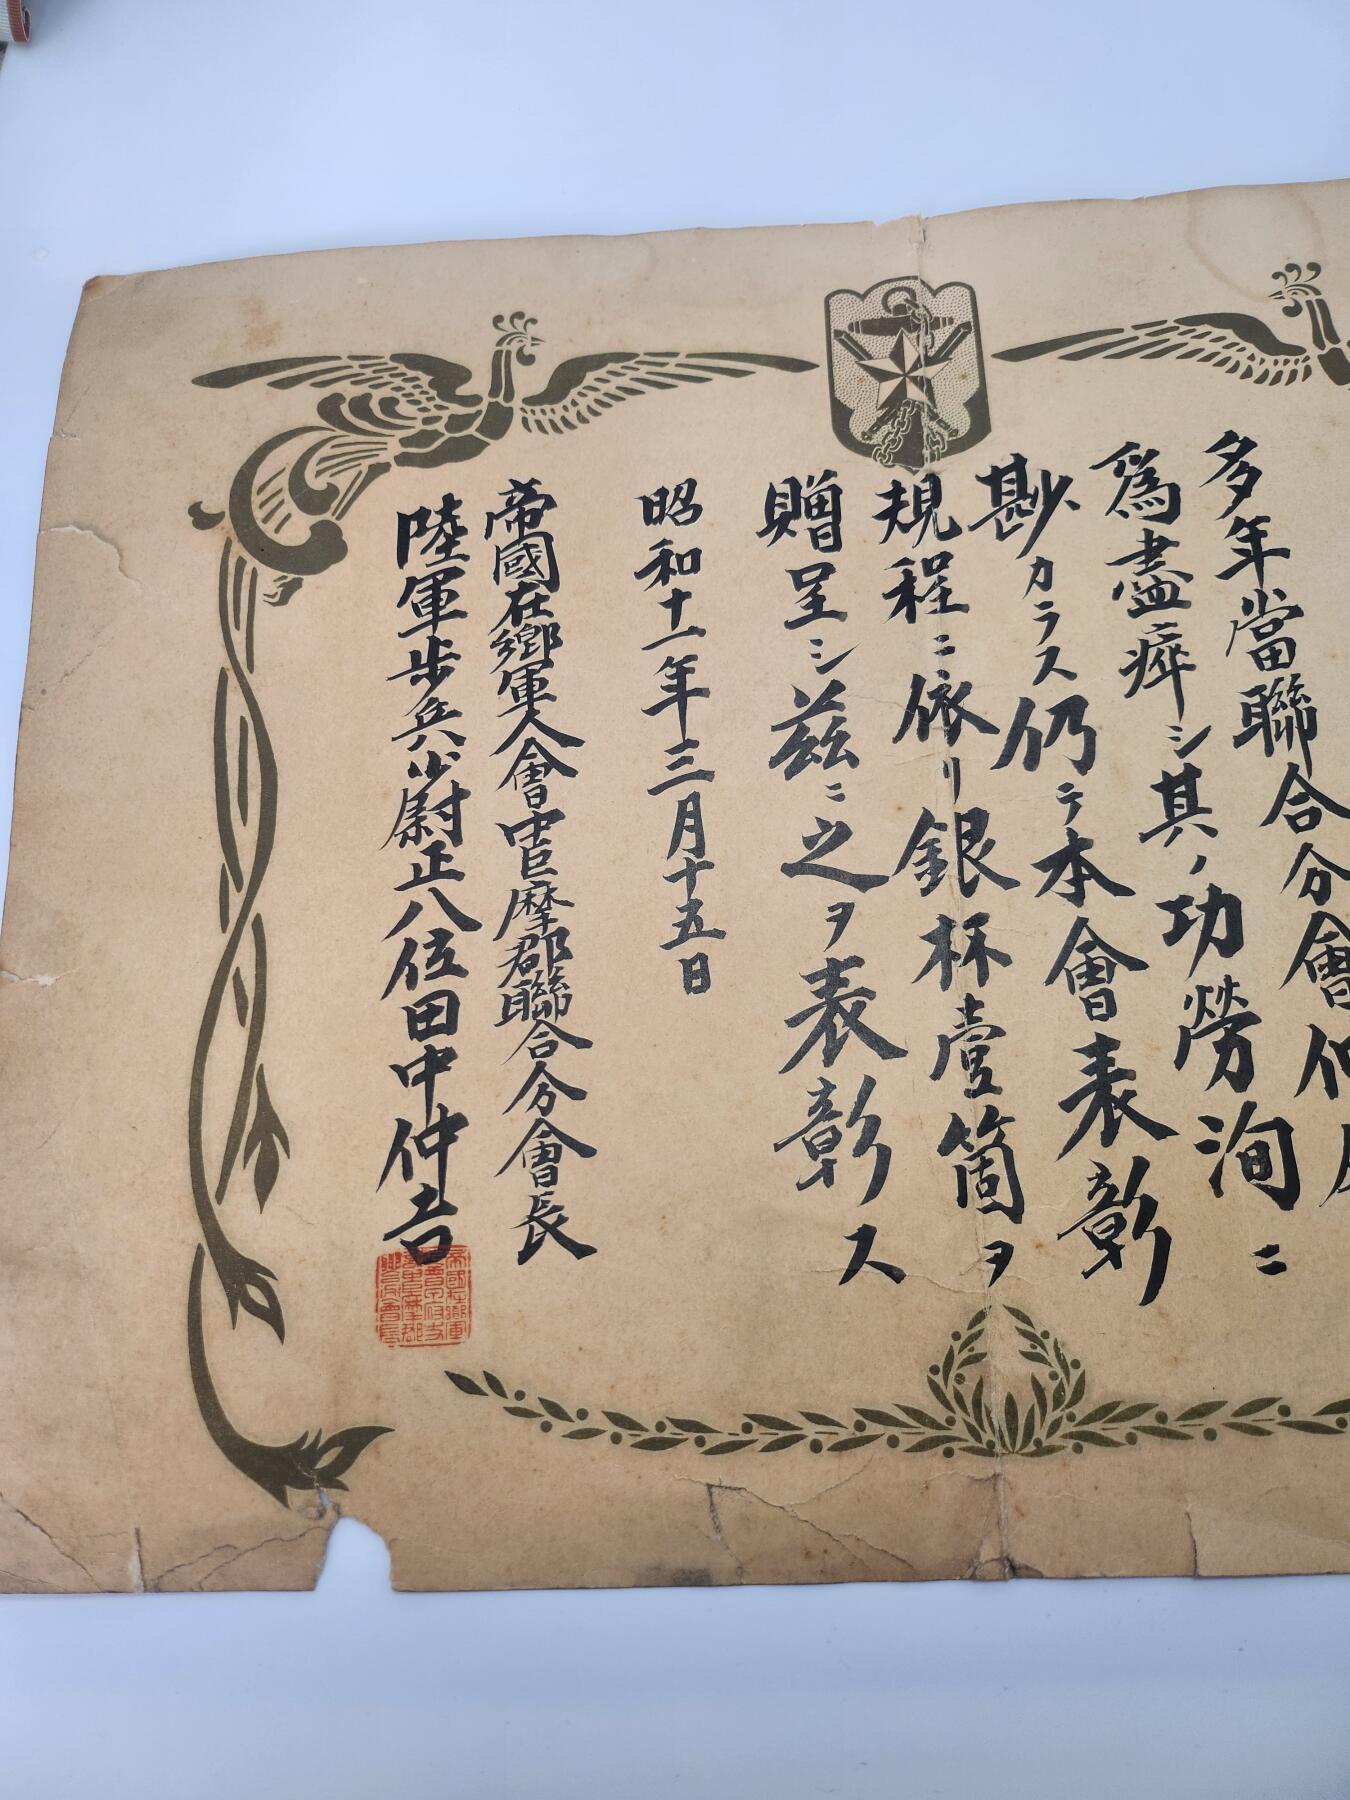 多年當聯合分會
爲盡瘁シ其ノ功勞洵ニ
尠カラス仍テ本會表彰
規程ニ依リ銀杯壹箇ヲ
贈呈シ茲ニ之ヲ表彰ス
昭和十一年三月十五日
帝國在郷軍人會中巨摩郡聯合分會長
陸軍歩兵少尉正八位田中仲吉